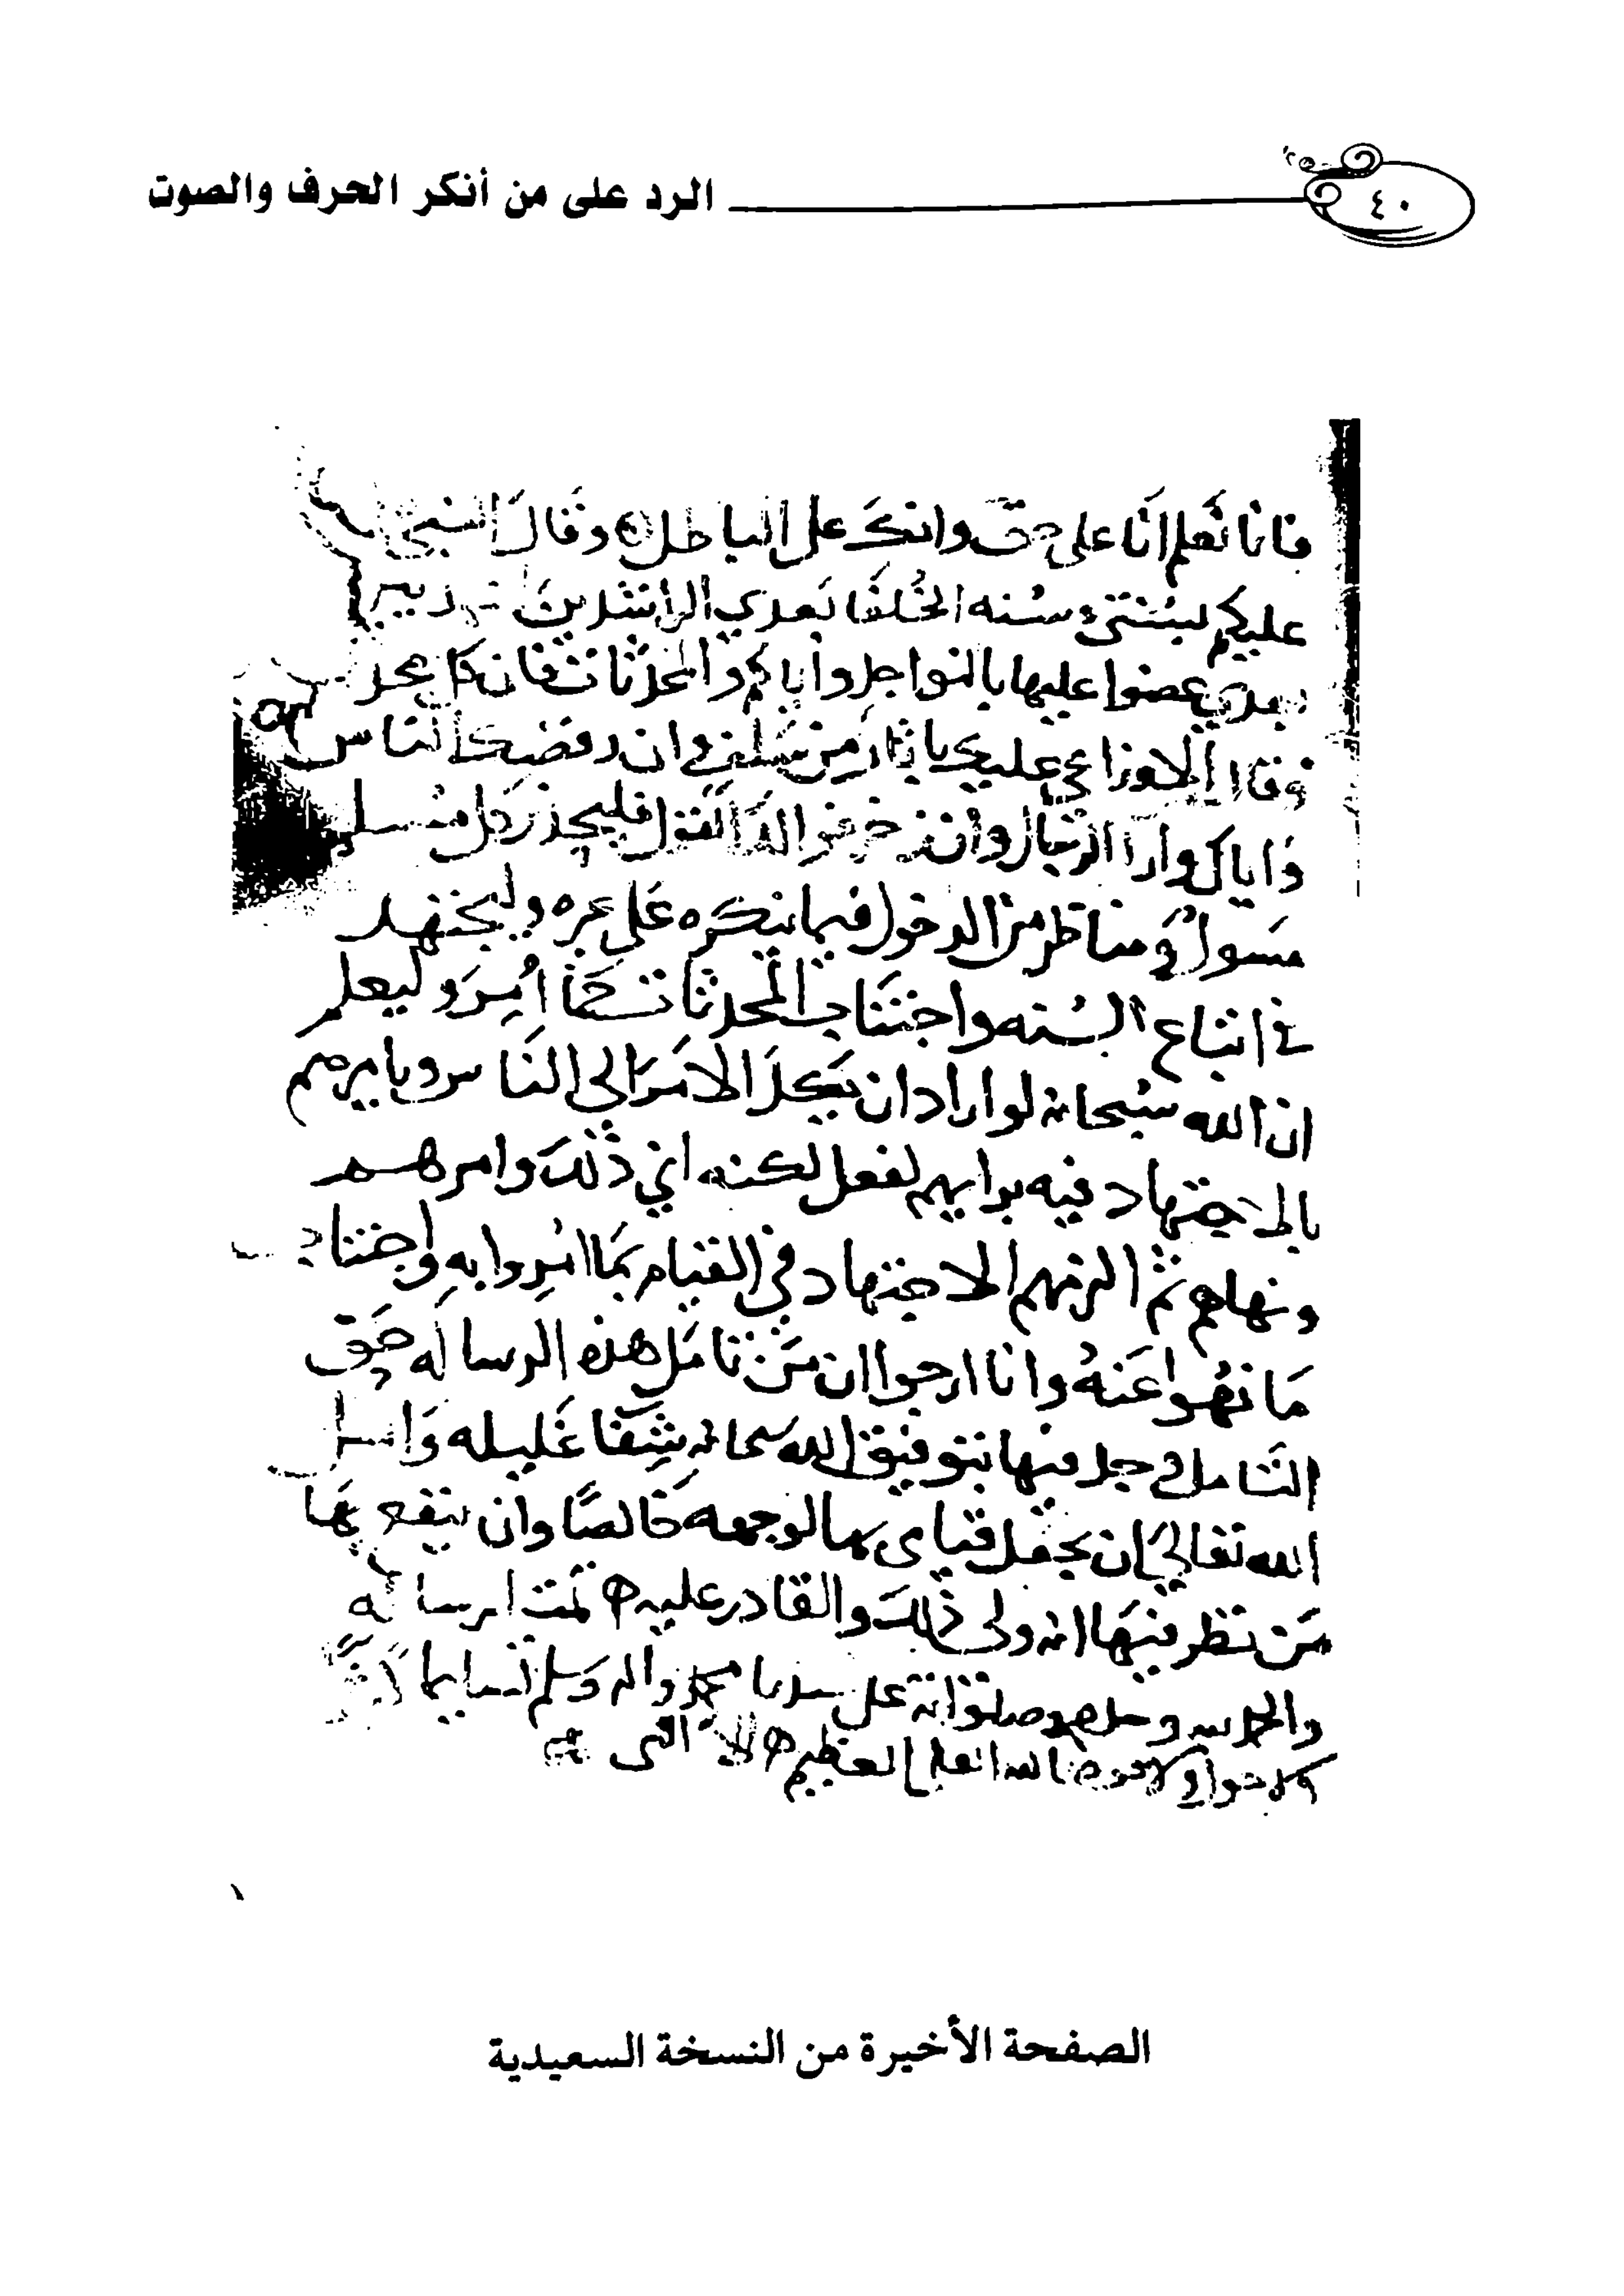 ٤٠ الرد على من أنكر الحرف والصوت
فانا نعلم انا على حق وانك على الباطل وقال النبي
عليكم بسنتي وسنه الخلفا بعدي الراشدين
بعدي عضوا عليها بالنواجد واياكم والمحدثات فان كل محد
وقال الاوزاعي عليك باثار من سلف وان رفضك الناس
واياك وارا الرجال وان زخرفوا لك القول فليحذر كل مسلم
مسول ومناظر من الدخول فيما ينكره على غيره وليجتهد
في اتباع السنه واجتناب المحدثات كما امر وليعلم
ان الله سبحانه لو اراد ان يكل الامر الى الناس ويامرهم
بالاجتهاد فيه برايهم لفعل لكنه ابي ذلك وامرهم
ونهاهم ثم الزمهم الاجتهاد في القيام بما امروا به واجتناب
ما نهوا عنه وانا ارجوا ان من تامل هذه الرساله حق
التامل وجد فيها بتوفيق الله سبحانه شفا غليله واسل
الله تعالى ان يجعل قيامي بها لوجهه خالصا وان ينفع بها
من نظر فيها انه ولي ذلك والقادر عليه تمت الرساله
والحمد لله وحده وصلواته على سيدنا محمد واله وسلم تسليما كثيرا
ولا حول ولا قوه الا بالله العلي العظيم
الصفحة الأخيرة من النسخة السعيدية